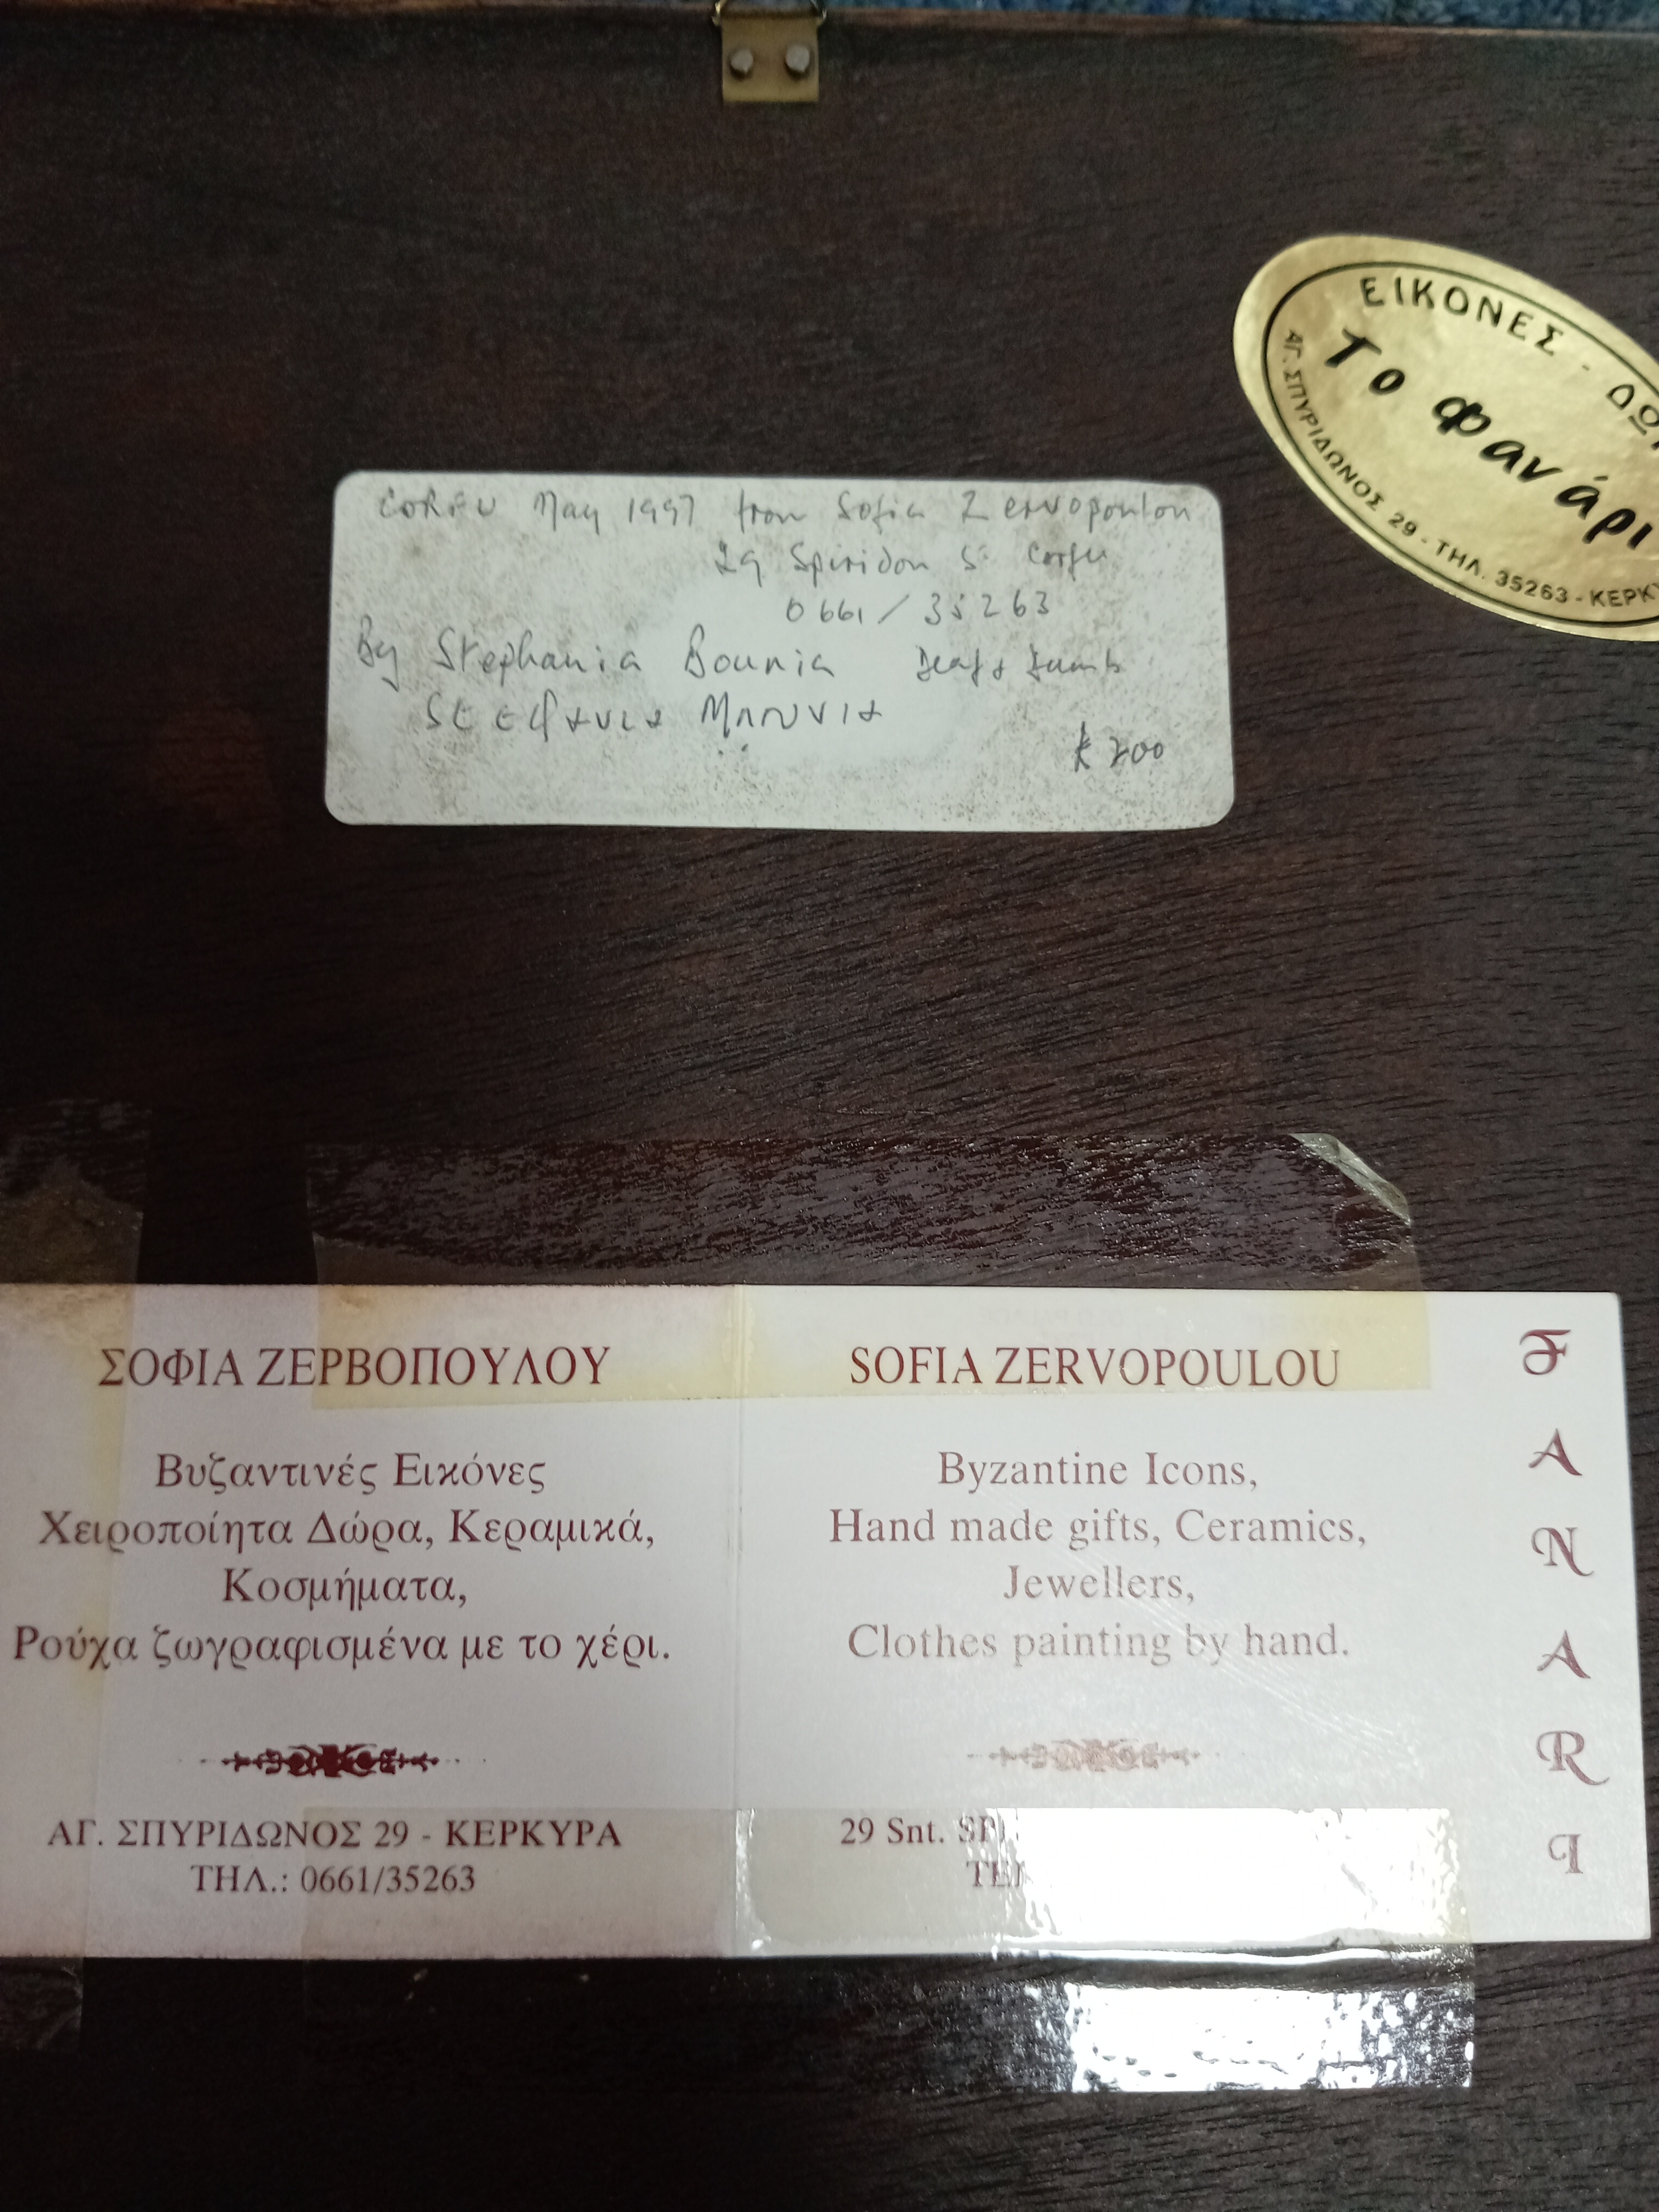 CORFU May 1997 from Sofia Zervopoulou
29 Spiridon St Corfu
0661/35263
By Stephania Bounia Deaf & Dumb
Μπουνια
200
ΕΙΚΟΝΕΣ -
Το φανάρι
ΑΓ. ΣΠΥΡΙΔΩΝΟΣ 29 - ΤΗΛ. 35263 -
ΣΟΦΙΑ ΖΕΡΒΟΠΟΥΛΟΥ
Βυζαντινές Εικόνες
Χειροποίητα Δώρα, Κεραμικά,
Κοσμήματα,
Ρούχα ζωγραφισμένα με το χέρι.
ΑΓ. ΣΠΥΡΙΔΩΝΟΣ 29 - ΚΕΡΚΥΡΑ
ΤΗΛ.: 0661/35263
SOFIA ZERVOPOULOU
Byzantine Icons,
Hand made gifts, Ceramics,
Jewellers,
Clothes painting by hand.
29 Snt.
FANARI